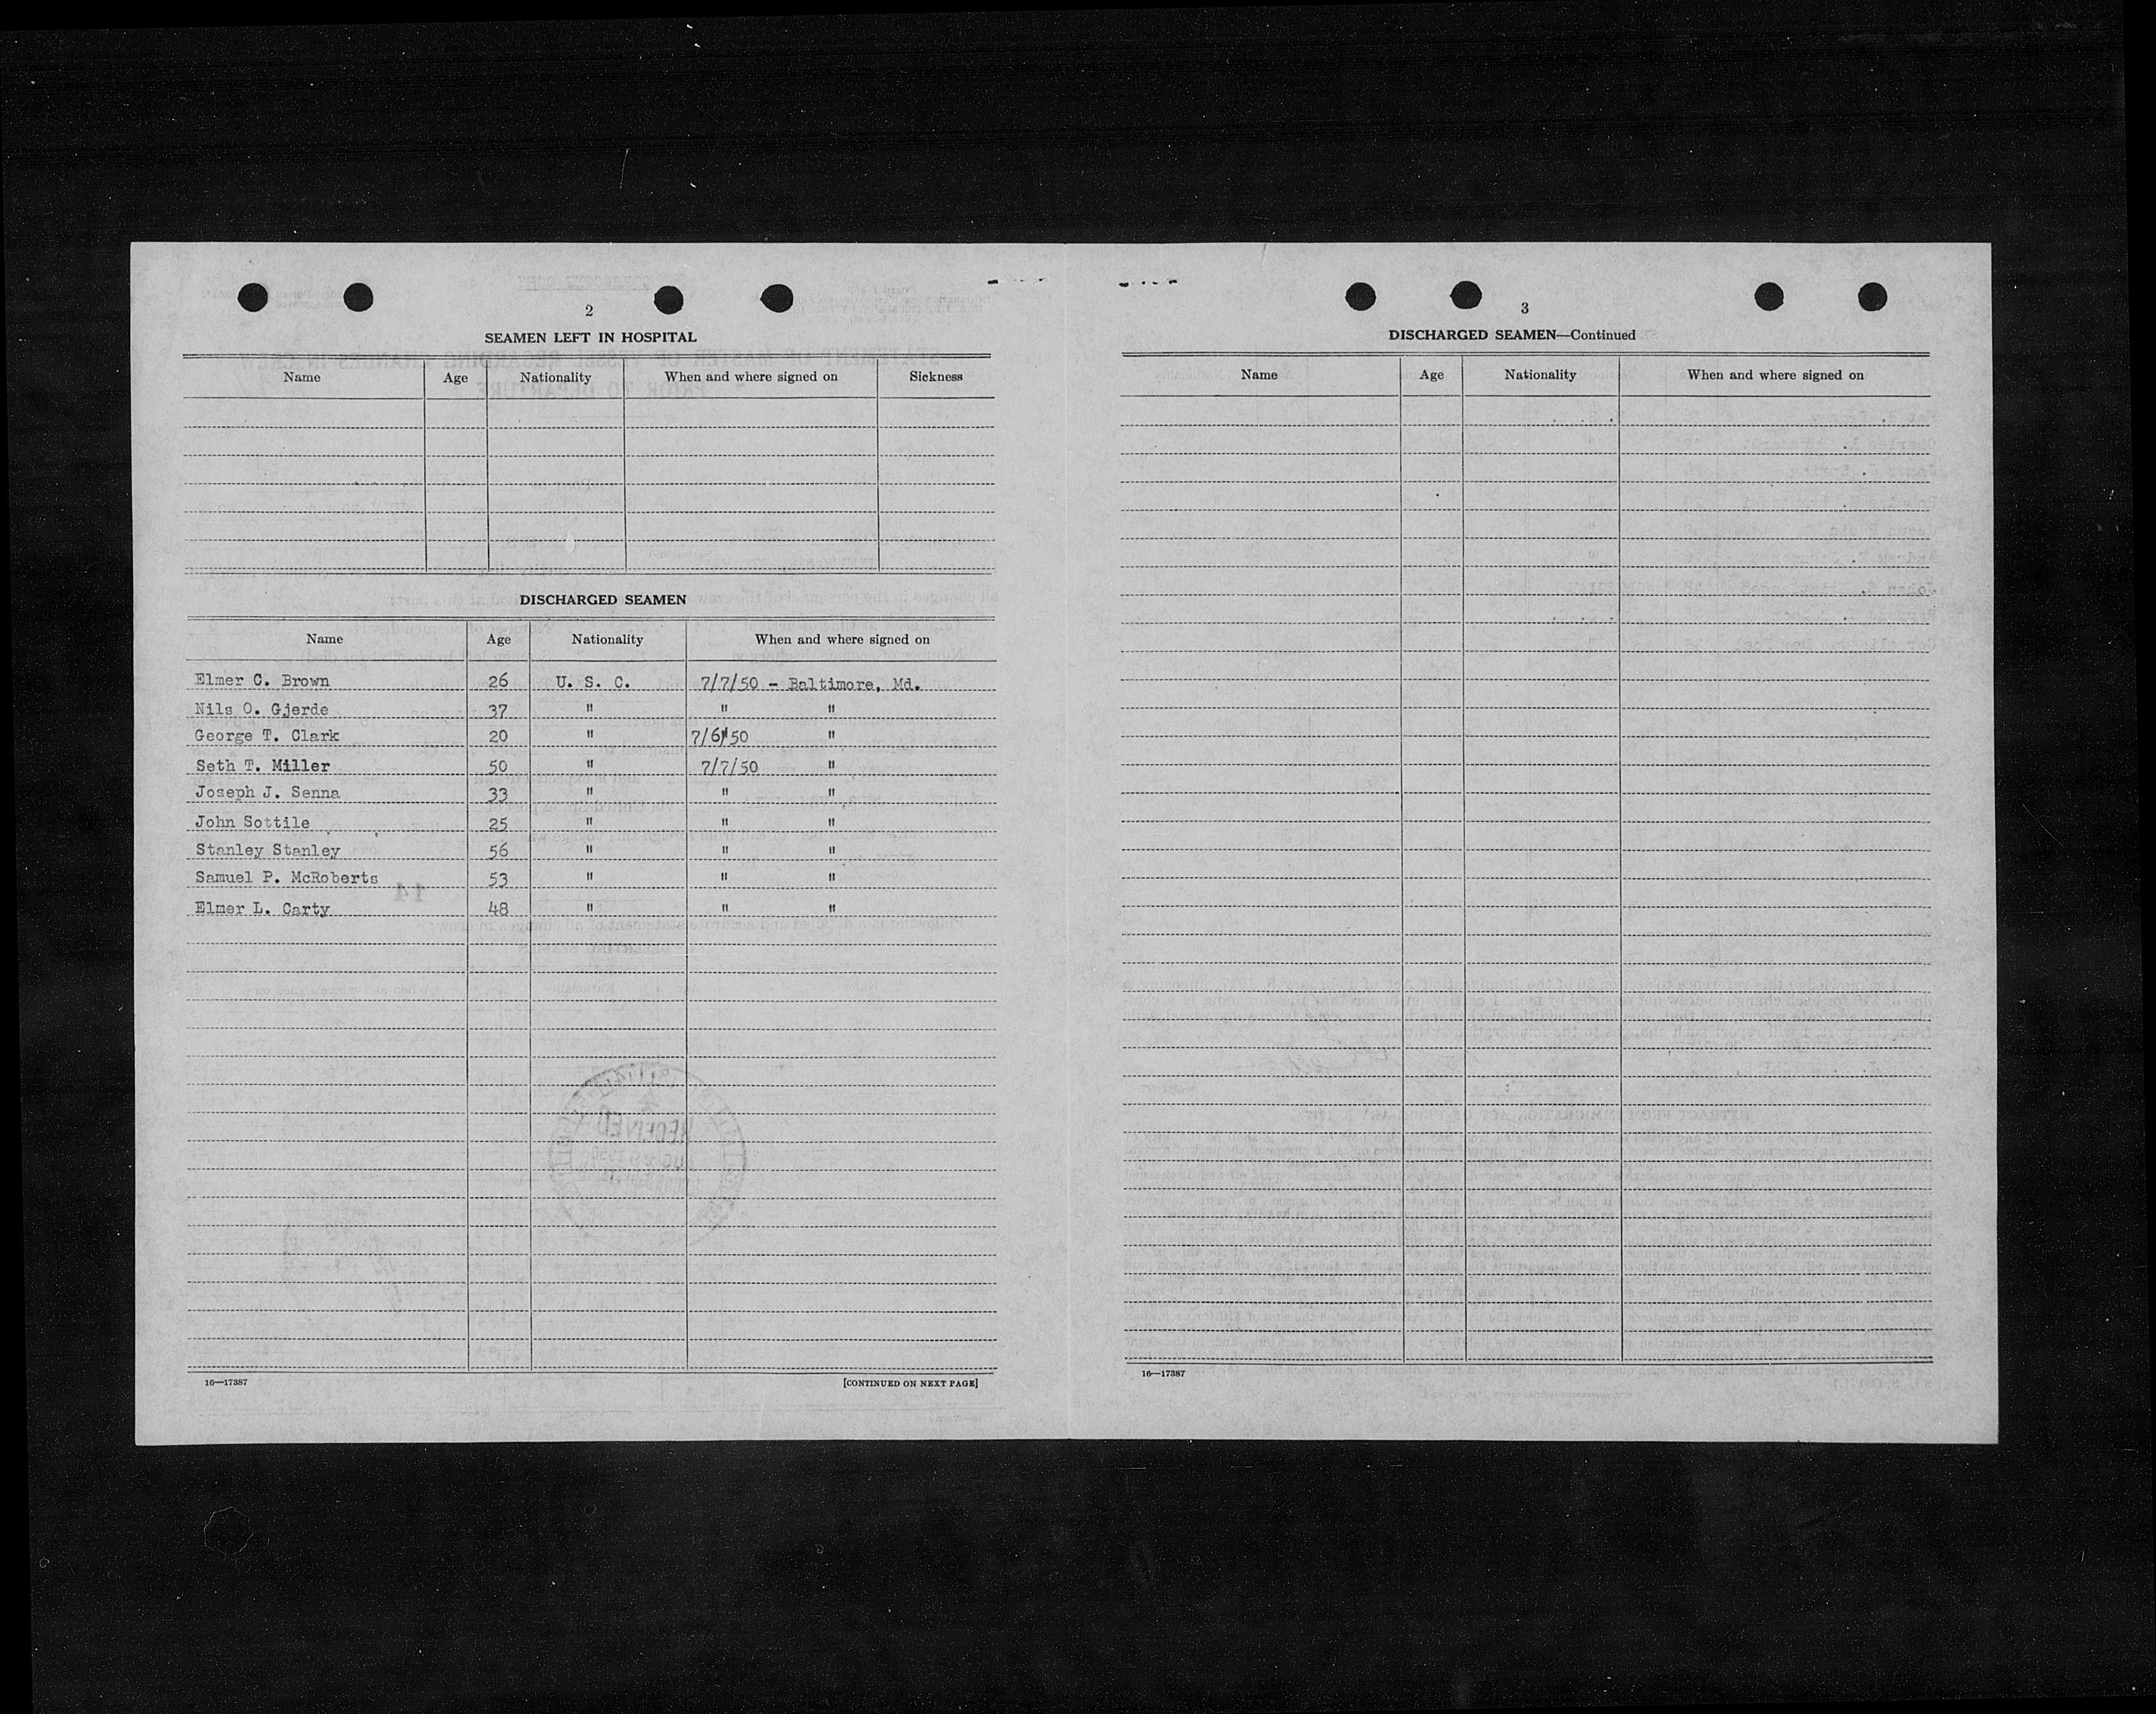 2
SEAMEN LEFT IN HOSPITAL
Name Age Nationality When and where signed on Sickness
DISCHARGED SEAMEN
Name Age Nationality When and where signed on
Elmer C. Brown 26 U. S. C. 7/7/50 - Baltimore, Md.
Nils O. Gjerde 37 " " "
George T. Clark 20 " 7/6/50 "
Seth T. Miller 50 " 7/7/50 "
Joseph J. Senna 33 " " "
John Sottile 25 " " "
Stanley Stanley 56 " " "
Samuel P. McRoberts 53 " " "
Elmer L. Carty 48 " " "
16—17387 [CONTINUED ON NEXT PAGE]
3
DISCHARGED SEAMEN—Continued
Name Age Nationality When and where signed on
16—17387